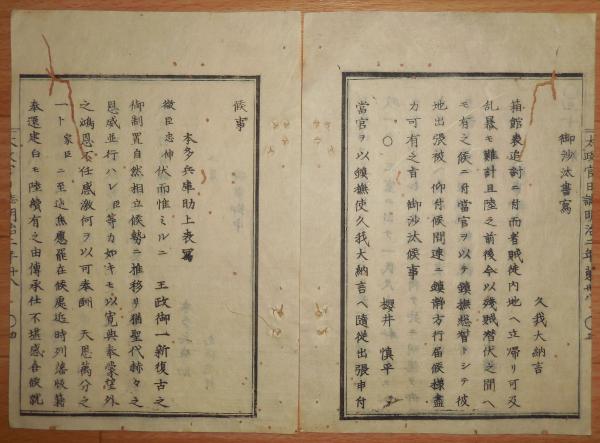 太政官日誌明治二年第卅八
御沙汰書寫
久我大納言
箱館表追討ニ付而者賊徒内地ヘ立帰リ可及
乱暴モ難計且陸之前後今以残賊潜伏之聞ヘ
モ有之候ニ付當官ヲ以テ鎮撫総督トシテ彼
地出張被　仰付候間速ニ鎮静方行届候様盡
力可有之旨　御沙汰候事
○　櫻井　慎平
當官ヲ以鎮撫使久我大納言ヘ随従出張申付
候事
本多兵庫助上表冩
微臣忠伸伏而惟ミルニ　王政御一新復古之
御制置自然相立候勢ニ推移リ猶聖代赫々之
恩威並行ハレ臣等カ如キモ以寛典奉蒙望外
之鴻恩不任感激何ヲ以可奉酬　天恩萬分之
一ト　家臣ニ至迄無應罷在候處近時列藩版籍
奉還建白モ陸續有之由傳承仕不堪感吾候就